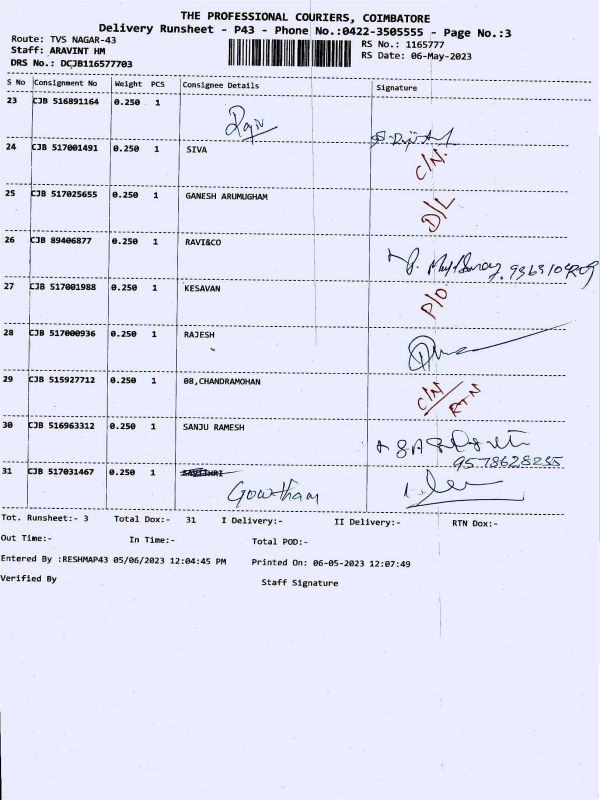 THE PROFESSIONAL COURIERS, COIMBATORE
Delivery Runsheet - P43 - Phone No.:0422-3505555 - Page No.:3
Route: TVS NAGAR-43 RS No.: 1165777
Staff: ARAVINT HM RS Date: 06-May-2023
DRS No.: DCJB116577703
S No Consignment No Weight PCS Consignee Details Signature
23 CJB 516891164 0.250 1
Rajiv
24 CJB 517001491 0.250 1 SIVA C/N.
25 CJB 517025655 0.250 1 GANESH ARUMUGHAM D/L
26 CJB 89406877 0.250 1 RAVI&CO
27 CJB 517001988 0.250 1 KESAVAN P/O
28 CJB 517000936 0.250 1 RAJESH
29 CJB 515927712 0.250 1 08,CHANDRAMOHAN C/N/ RTN
30 CJB 516963312 0.250 1 SANJU RAMESH
9578628235
31 CJB 517031467 0.250 1 SAVITHRI
Gowtham
Tot. Runsheet:- 3 Total Dox:- 31 I Delivery:- II Delivery:- RTN Dox:-
Out Time:- In Time:- Total POD:-
Entered By :RESHMAP43 05/06/2023 12:04:45 PM Printed On: 06-05-2023 12:07:49
Verified By Staff Signature